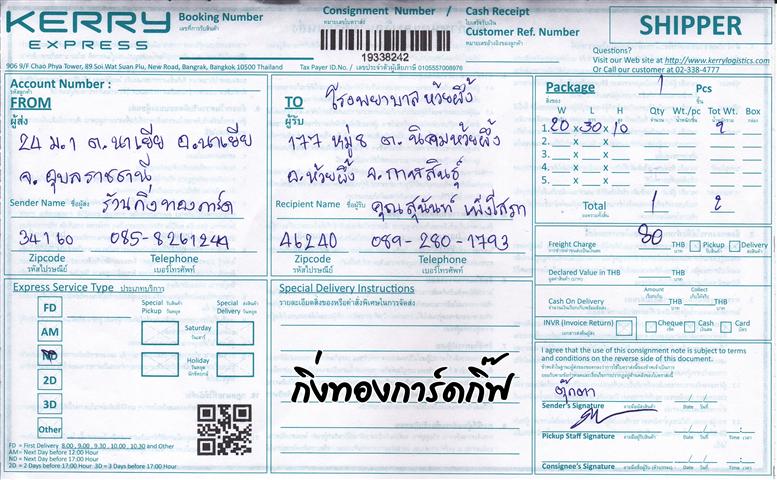 KERRY
EXPRESS
Booking Number
เลขที่การรับสินค้า
Consignment Number /
หมายเลขใบตราส่ง
Cash Receipt
ใบเสร็จรับเงิน
Customer Ref. Number
หมายเลขอ้างอิงของลูกค้า
19338242
SHIPPER
Questions?
Visit our Web site at http://www.kerrylogistics.com
Or Call our customer at 02-338-4777
906 9/F Chao Phya Tower, 89 Soi Wat Suan Plu, New Road, Bangrak, Bangkok 10500 Thailand
Tax Payer ID.No. / เลขประจำตัวผู้เสียภาษี 0105557008976
Account Number :
รหัสลูกค้า
FROM
ผู้ส่ง
24 ม.1 ต.นาเยีย อ.นาเยีย
จ.อุบลราชธานี
Sender Name ชื่อผู้ส่ง ร้านกิ่งทองการ์ด
34160 085-8261244
Zipcode Telephone
รหัสไปรษณีย์ เบอร์โทรศัพท์
TO โรงพยาบาลห้วยผึ้ง
ผู้รับ
177 หมู่8 ต.นิคมห้วยผึ้ง
อ.ห้วยผึ้ง จ.กาฬสินธุ์
Recipient Name ชื่อผู้รับ คุณสุนันท์
46240 089-280-1793
Zipcode Telephone
รหัสไปรษณีย์ เบอร์โทรศัพท์
Package 1 Pcs
สิ่งของ ชิ้น
W L H Qty Wt./pc Tot Wt. Box
1. 20 x 30 x 10 2
2. x x
3. x x
4. x x
5. x x
Total 1 2
Freight Charge 80 THB Pickup Delivery
Declared Value in THB THB
Amount Collect
Cash On Delivery THB THB
INVR (Invoice Return) Cheque Cash Card
I agree that the use of this consignment note is subject to terms
and conditions on the reverse side of this document.
ตุ๊กตา
Sender's Signature ลายมือชื่อผู้ส่ง Date วันที่
Pickup Staff Signature Date วันที่ Time เวลา
Consignee's Signature Date วันที่ Time เวลา
Express Service Type ประเภทบริการ
FD
AM
ND
2D
3D
Other
Special Pickup
Special Delivery
Saturday
วันเสาร์
Holiday
วันหยุดนักขัตฤกษ์
FD = First Delivery 8.00 , 9.00 , 9.30 , 10.00 , 10.30 and Other
AM = Next Day before 12:00 Hour
ND = Next Day before 17:00 Hour
2D = 2 Days before 17:00 Hour 3D = 3 Days before 17:00 Hour
Special Delivery Instructions
รายละเอียดสิ่งของหรือคำสั่งพิเศษในการจัดส่ง
กิ่งทองการ์ดกิ๊ฟ